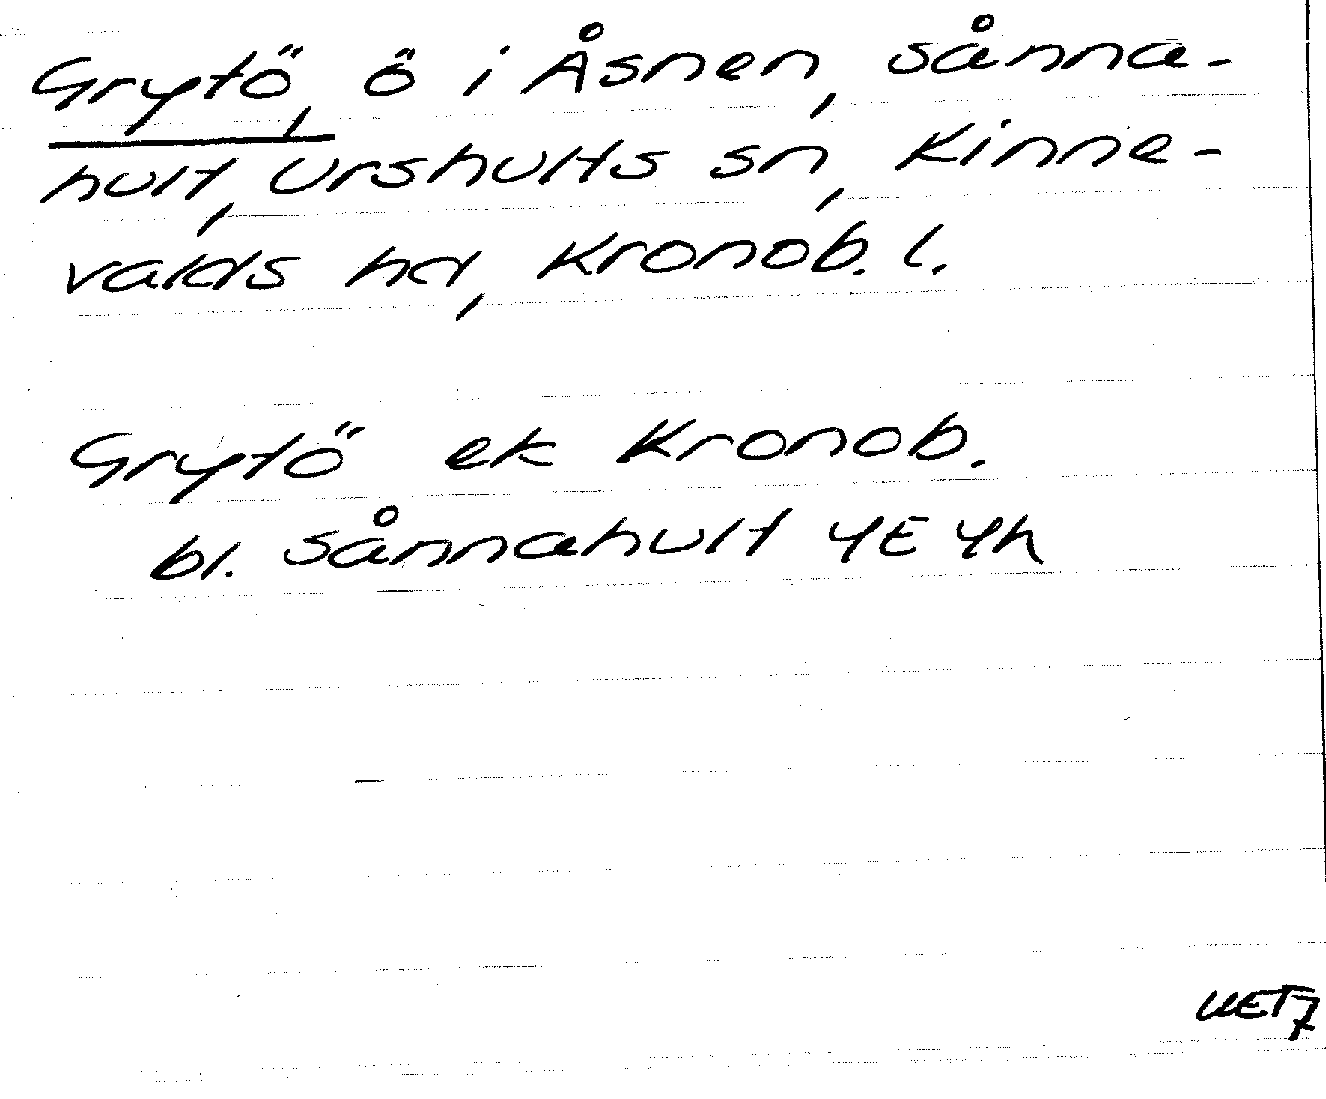 Grytö, ö i Åsnen, Sånna-
hult, Urshults sn, Kinne-
valds hd, Kronob. l.
Grytö ek Kronob.
bl. Sånnahult 4E 4h